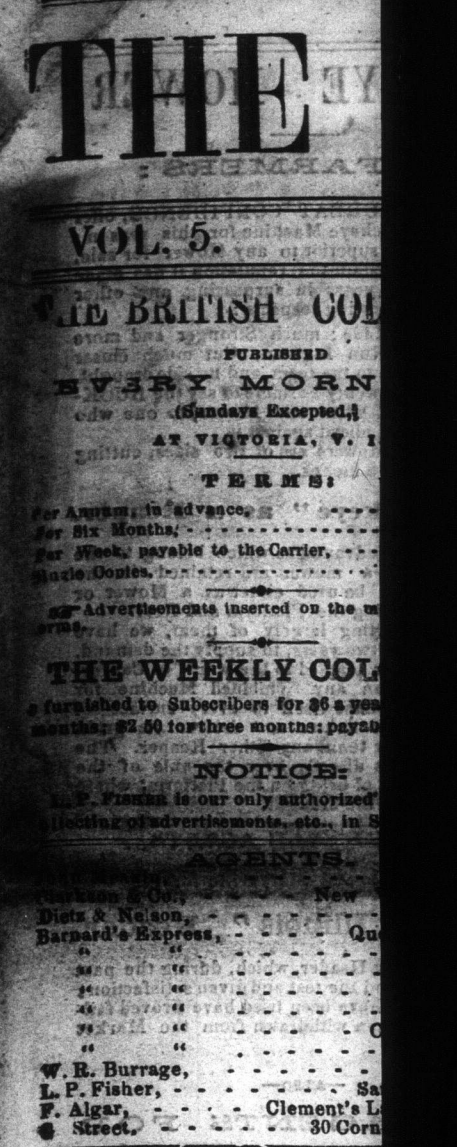 THE
VOL. 5.
THE BRITISH COL
PUBLISHED
EVERY MORN
(Sundays Excepted,)
AT VICTORIA, V. I
TERMS:
Per Annum, in advance, - - - -
For Six Months, - - - - - - - - - -
Per Week, payable to the Carrier, - - -
Single Copies, - - - - - - - - - - - -
Advertisements inserted on the m
erms.
THE WEEKLY COL
s furnished to Subscribers for $6 a yea
months; $2 50 for three months: payab
NOTICE:
L. P. FISHER is our only authorized
ollecting of advertisements, etc., in S
AGENTS.
Clarkson & Co., - - - - New
Dietz & Nelson, - - - - - - -
Barnard's Express, - - - - Que
" " - - - - -
" " - - - - -
" " - - - - -
" " - - - - C
" " - - - - -
W. R. Burrage, - - - - -
L. P. Fisher, - - - - - - Sa
F. Algar, - - - - Clement's L
G Street, - - - - 30 Corn